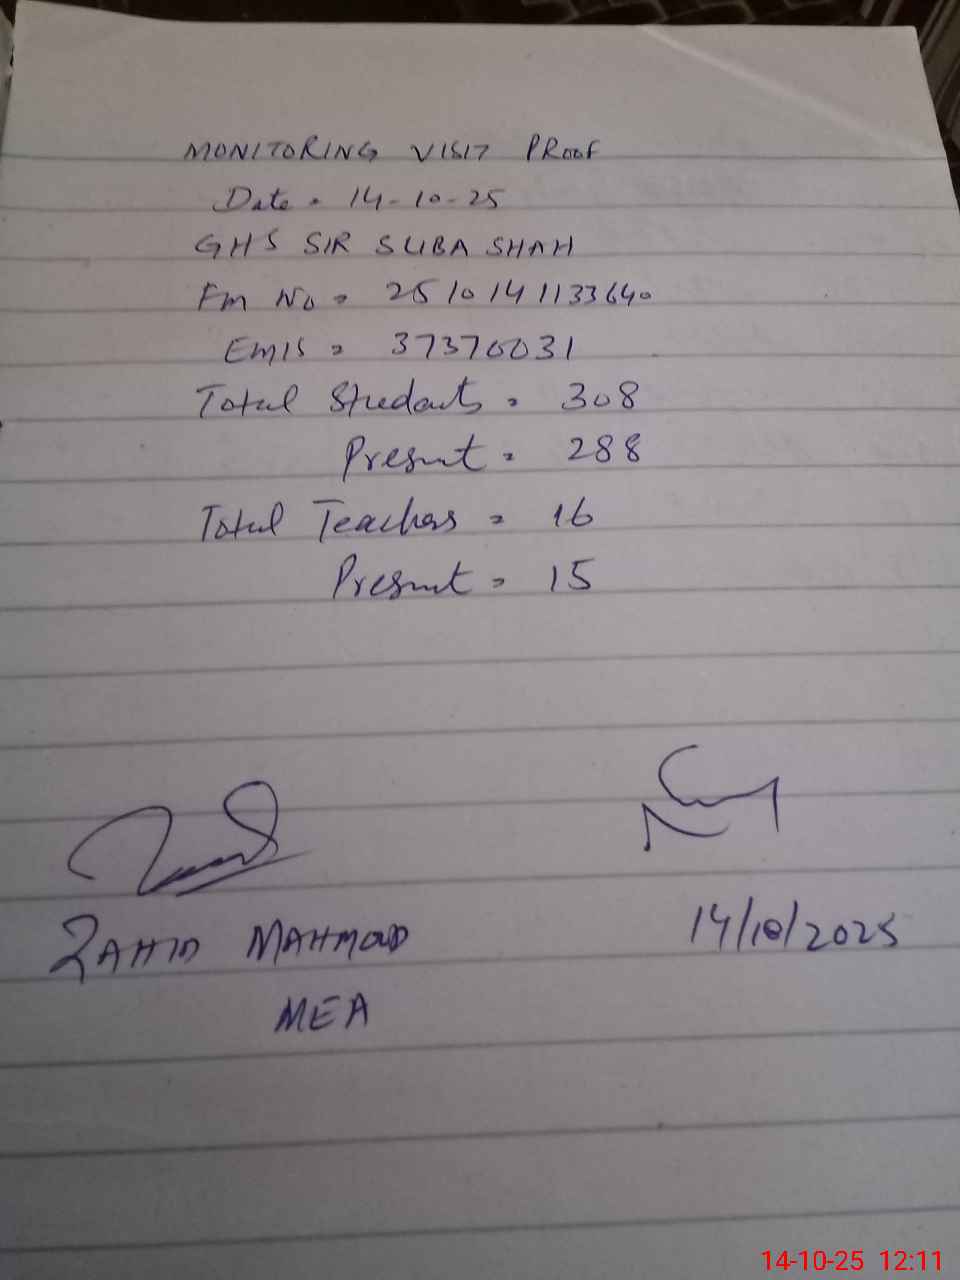 MONITORING VISIT PROOF
Date = 14-10-25
GHS SIR SUBA SHAH
Fm No = 2510141133640
EMIS = 37370031
Total Students = 308
Present = 288
Total Teachers = 16
Present = 15
ZAHID MAHMOOD
14/10/2025
MEA
14-10-25 12:11